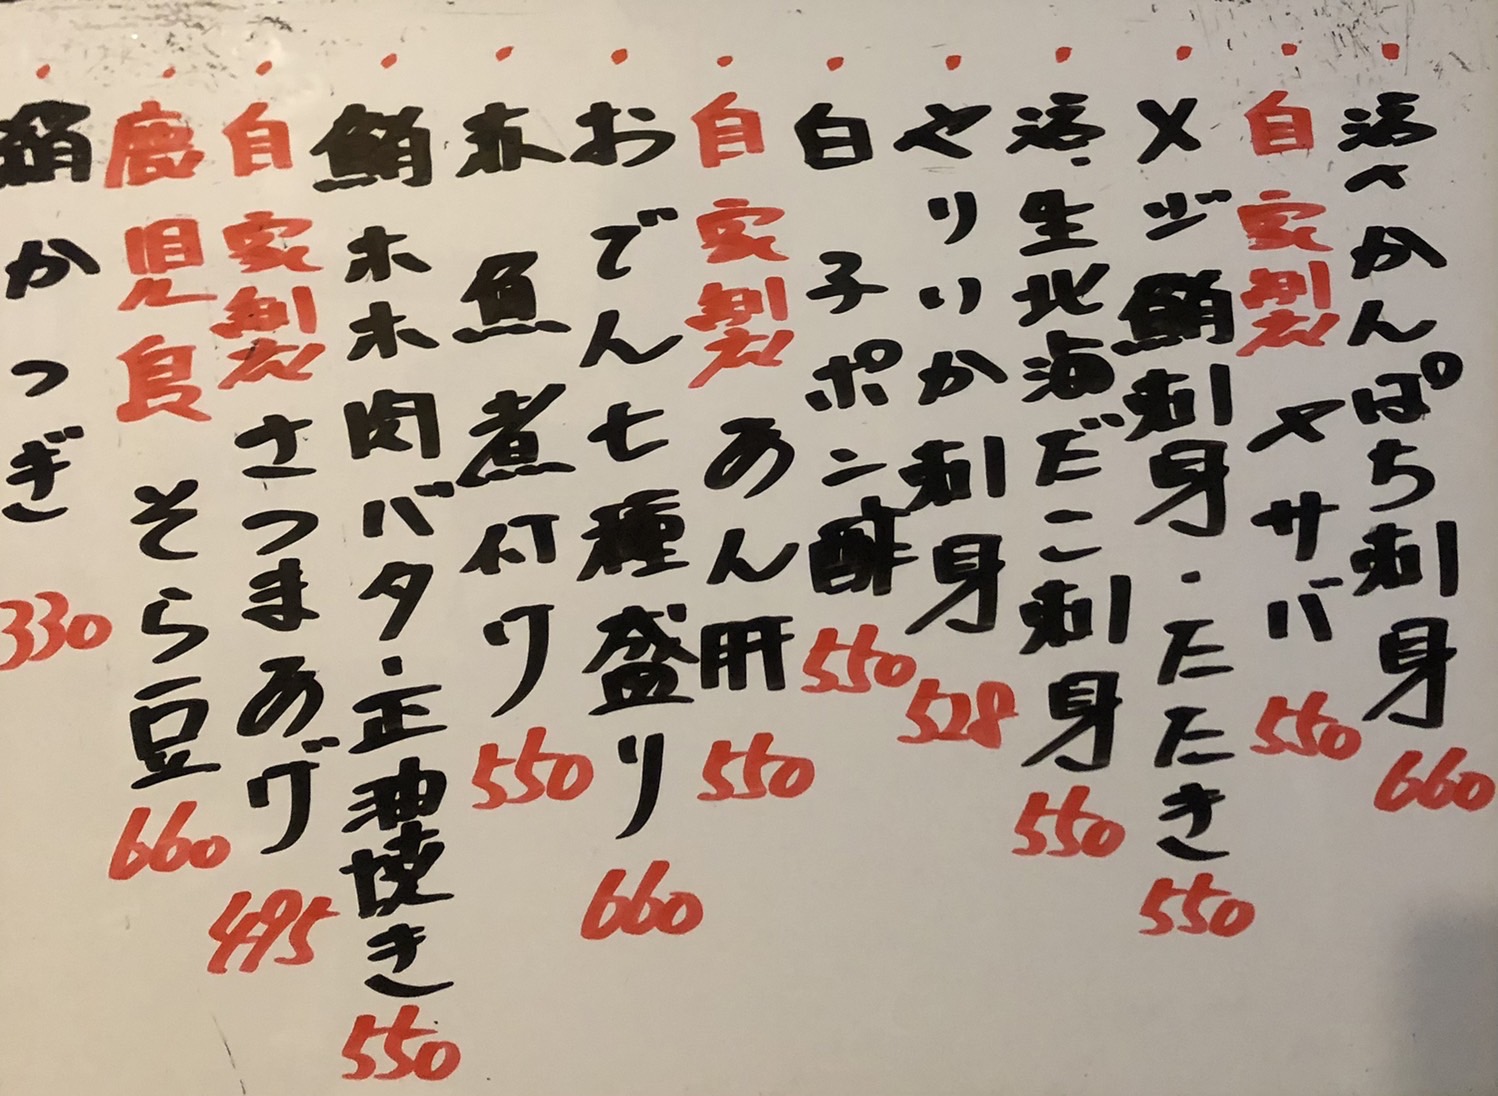 ・活〆かんぱち刺身 660
・自家製〆サバ 550
・メジ鮪刺身・たたき 550
・活、生北海だこ刺身 550
・やりいか刺身 528
・白子ポン酢 550
・自家製あん肝 550
・おでん七種盛り 660
・赤魚煮付け 550
・鮪ホホ肉バタ・正油焼き 550
・自家製さつまあげ 495
・鹿児島そら豆 660
・絹かつぎ 330